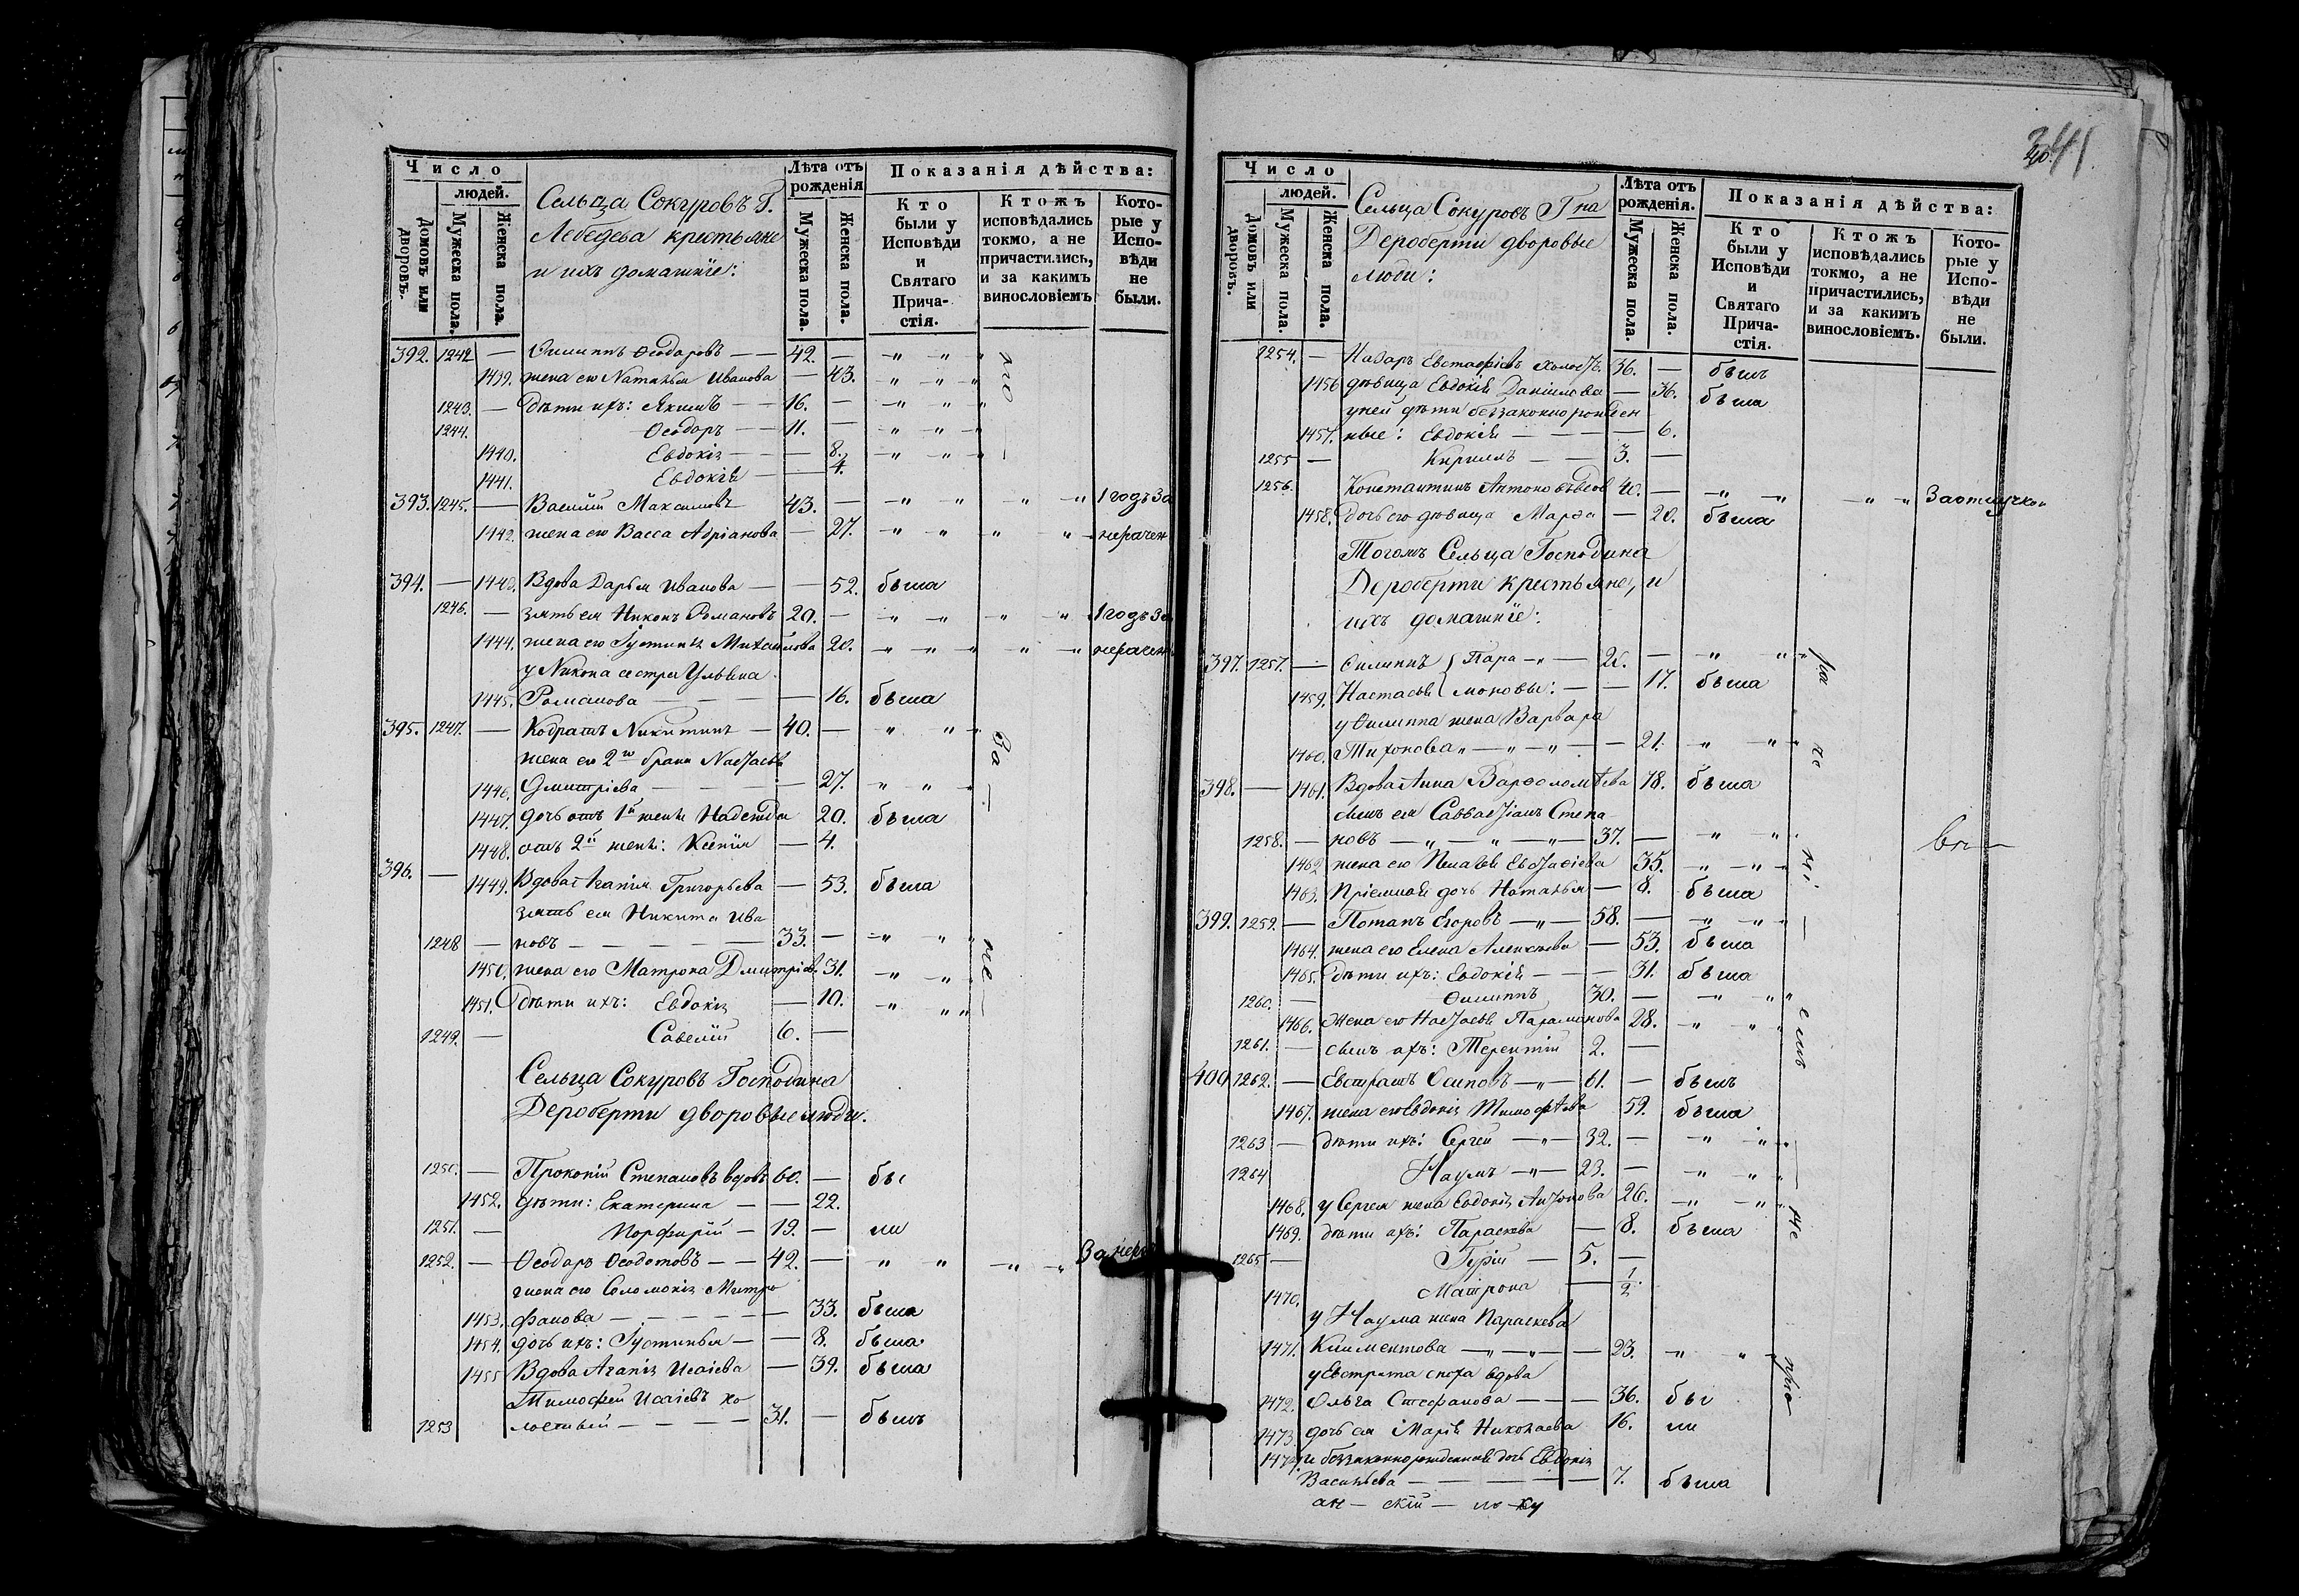 Число
людей.
Домовъ или дворовъ.
Мужеска пола.
Женска пола.
Сельца Сокуровъ Г.
Лебедева крестьяне
и ихъ домашніе:
Лѣта отъ рожденія
Мужеска пола.
Женска пола.
Показанія дѣйства:
Кто были у Исповѣди и Святаго Причастія.
Ктожъ исповѣдались токмо, а не причастились, и за какимъ винословіемъ
Которые у Исповѣди не были.
392. 1242. — Филиппъ Ѳеодоровъ — — 42. — " " "
1439. жена его Наталья Иванова — 43. — " — " — "
1243. — Дѣти ихъ: Якимъ — — 16. — — " — " "
1244. Ѳеодоръ — — 11. — — " — " — "
1440. Евдокія — — — 8. — " " — "
1441. Евдокія — — 4.
393. 1245. — Василій Максимовъ 43. — — " " — " " 1 годъ за
1442. жена его Васса Адріанова — 27. — " — " — " " нерачен
394. — 1443. Вдова Дарья Иванова — — 52. была
1246. — зять ея Никонъ Романовъ 20. — — " — " — " " 1 годъ за
1444. жена его Іустинія Михайлова 20. — " — " — " " — " нерачен
у Никона сестра Ульяна
1445. Романова — — — — 16. была
395. 1247. — Кодратъ Никитинъ — 40. — " " — "
жена его 2го брака Настасья
1446. Дмитріева — — — — 27. " — " — "
1447. дочь отъ 1й жены Надежда 20. была
1448. отъ 2й жены: Ксенія — 4.
396. — 1449. Вдова Агапія Григорьева — 53. была
зять ея Никита Ива
1248 — новъ — — — — — 33. — — " " "
1450. жена его Матрона Дмитріев. 31. — " — "
1451. Дѣти ихъ: Евдокія — 10. — " " "
1249. — Савелій 6. —
за
не
Сельца Сокуровъ Господина
Дероберти дворовые люди.
1250. — Прокопій Степановъ вдовъ 60. — бы
1452. дѣти: Екатерина — — 22.
1251. — Порфирій — 19. — ли
1252. — Ѳеодоръ Ѳеодотовъ — — 42. — " " — " " За нера
жена его Соломонія Митро
1453. фанова — — — — — 33. была
1454. дочь ихъ: Іустинья — — 8. была
1455 Вдова Агапія Исаіева — 39. была
Тимофей Исаіевъ хо
1253 лостый — — — — 31. — былъ
Число
людей.
Домовъ или дворовъ.
Мужеска пола.
Женска пола.
Сельца Сокуровъ Г на
Дероберти дворовые
люди:
Лѣта отъ рожденія.
Мужеска пола.
Женска пола.
Показанія дѣйства:
Кто были у Исповѣди и Святаго Причастія.
Ктожъ исповѣдались токмо, а не причастились, и за какимъ винословіемъ.
Которые у Исповѣди не были.
1254. — Назаръ Евстафіевъ холост. 36. — былъ
1456 дѣвица Евдокія Даніилова — 36. была
у ней дѣти беззаконнорожден
1457. ные: Евдокія — — — 6.
1255 — Кириллъ — — 3. —
1256. Константинъ Антоновъ вдов 40. — — " — " — " — " За отлучкою
1458. дочь его дѣвица Марѳа — 20. была
Тогожъ Сельца Господина
Дероберти крестьяне, и
ихъ домашніе:
397. 1257. — Филиппъ { Пара — " — 20. — — " " — "
1459. Настасья { моновы: — — 17. была
у Филиппа жена Варвара
1460. Тихонова " — " — " — — 21. — " " — "
398. — 1461. Вдова Анна Варѳоломѣева 78. была
сынъ ея Савватіанъ Степа
1258. — новъ — " — " — " — 37. — — " " "
1462 жена его Пелагія Евстафіева 35. — " — " — "
1463. Пріемная дочь Наталья — 8. была
399. 1259. — Потапъ Егоровъ — " — 58. — — " " "
1464. жена его Елена Алексѣева — 53. была
1465. Дѣти ихъ: Евдокія — — — 31. была
1260. — Филиппъ 30. — — " " "
1466. Жена его Настасья Парамонова 28. — " " "
1261. — сынъ ихъ: Терентій 2. —
400 1262. — Евстратъ Осиповъ — " — 61. — былъ
1467. жена его Евдокія Тимофѣева 59. была
1263 — дѣти ихъ: Сергей — " — 32. — — " " "
1264 Наумъ — " — 23. — — " " "
1468. у Сергея жена Евдокія Антонова 26. — " — " "
1469. дѣти ихъ: Параскева — 8. была
1265 — Гурій — 5. —
1470. Матрона — 1/2.
у Наума жена Параскева
1471. Климентова — " — " — — 23. — " " — "
у Евстрата сноха вдова
1472. Ольга Стефанова — — — 36. бы
1473. дочь ея Марія Николаева 16. ли
1474. и беззаконнорожденная дочь Евдокія
Васильева — — — — — 7. была